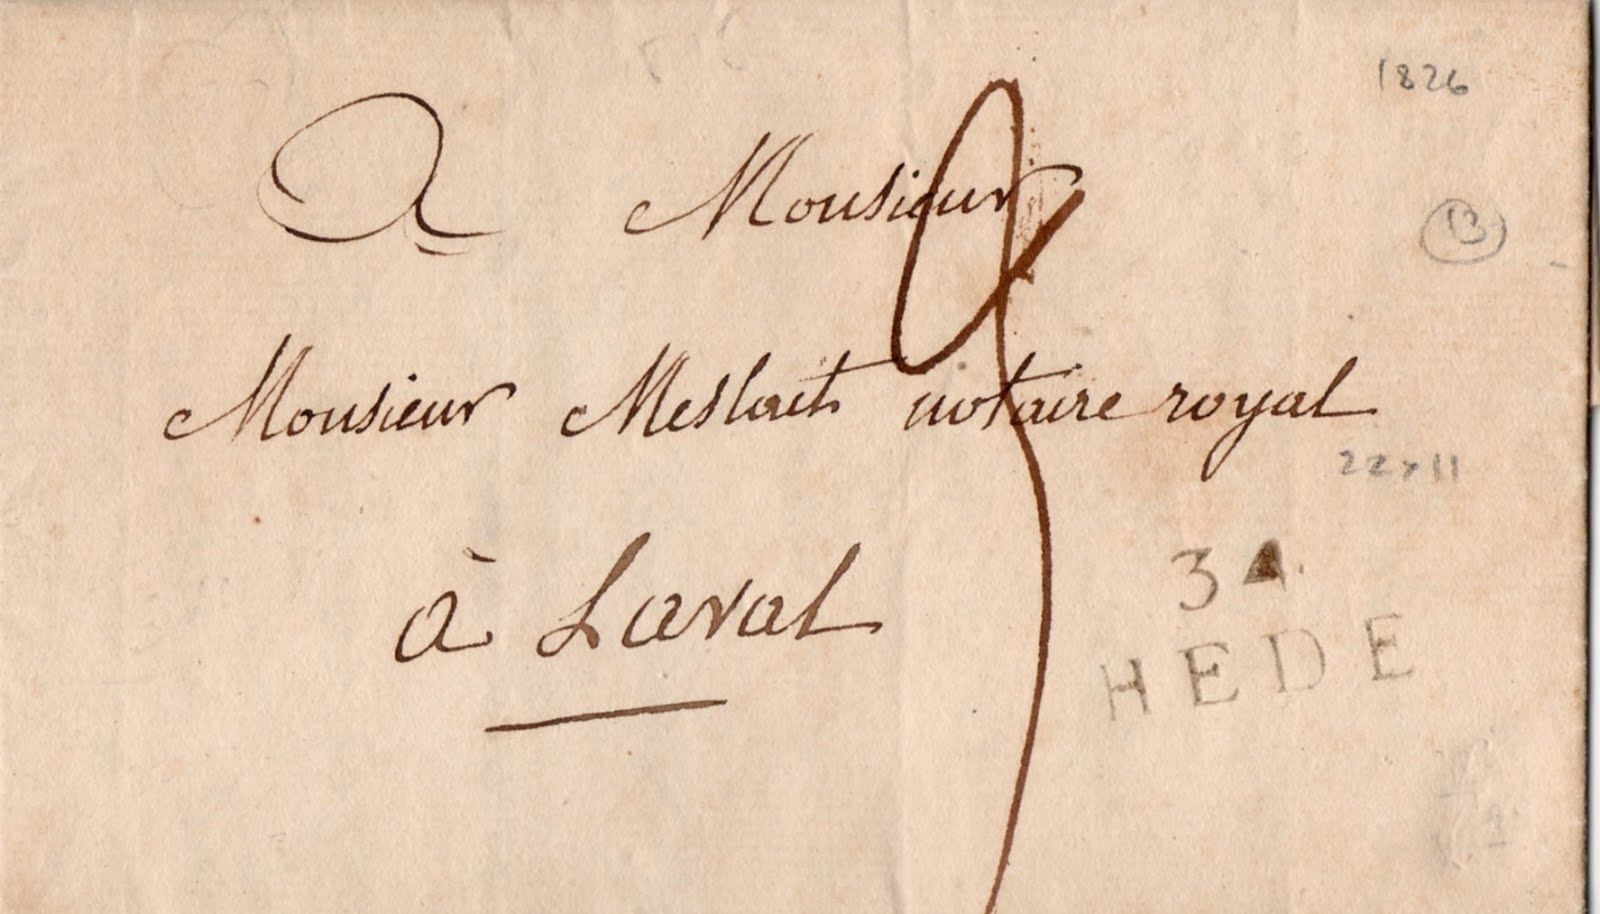 1826
A Monsieur
13
Monsieur Meslait notaire royal
22x11
à Laval
34
HEDE